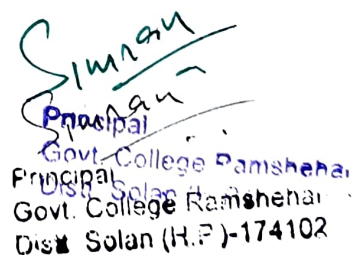 Simran
Simran
Principal
Govt. College Ramshehar
Distt. Solan (H.P.)
Principal
Govt. College Ramshehar
Distt Solan (H.P)-174102